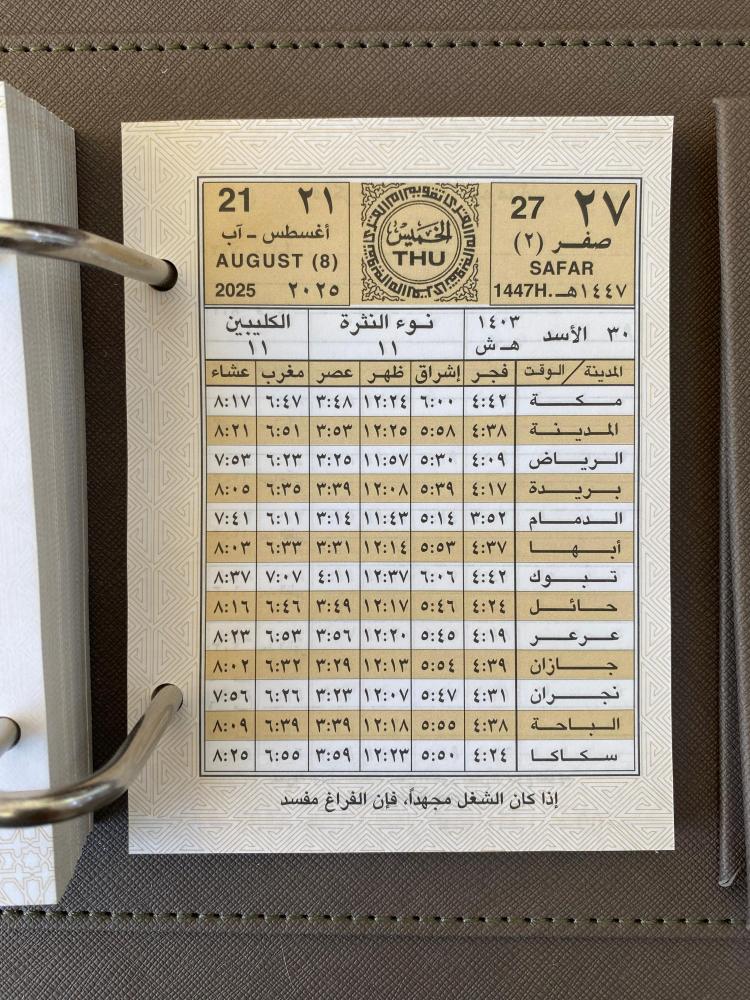 ٢٧ 27
صفـر (٢)
SAFAR
١٤٤٧هـ 1447H.
الخميس
THU
21 ٢١
أغسطس - آب
AUGUST (8)
2025 ٢٠٢٥
٣٠ الأسد ١٤٠٣ هـ ش
نوء النثرة ١١
الكليبين ١١
المدينة / الوقت فجر إشراق ظهر عصر مغرب عشاء
مكة ٤:٤٢ ٦:٠٠ ١٢:٢٤ ٣:٤٨ ٦:٤٧ ٨:١٧
المدينة ٤:٣٨ ٥:٥٨ ١٢:٢٥ ٣:٥٣ ٦:٥١ ٨:٢١
الرياض ٤:٠٩ ٥:٣٠ ١١:٥٧ ٣:٢٥ ٦:٢٣ ٧:٥٣
بريدة ٤:١٧ ٥:٣٩ ١٢:٠٨ ٣:٣٩ ٦:٣٥ ٨:٠٥
الدمام ٣:٥٢ ٥:١٤ ١١:٤٣ ٣:١٤ ٦:١١ ٧:٤١
أبها ٤:٣٧ ٥:٥٣ ١٢:١٤ ٣:٣١ ٦:٣٣ ٨:٠٣
تبوك ٤:٤٢ ٦:٠٦ ١٢:٣٧ ٤:١١ ٧:٠٧ ٨:٣٧
حائل ٤:٢٤ ٥:٤٦ ١٢:١٧ ٣:٤٩ ٦:٤٦ ٨:١٦
عرعر ٤:١٩ ٥:٤٥ ١٢:٢٠ ٣:٥٦ ٦:٥٣ ٨:٢٣
جازان ٤:٣٩ ٥:٥٤ ١٢:١٣ ٣:٢٩ ٦:٣٢ ٨:٠٢
نجران ٤:٣١ ٥:٤٧ ١٢:٠٧ ٣:٢٣ ٦:٢٦ ٧:٥٦
الباحة ٤:٣٨ ٥:٥٥ ١٢:١٨ ٣:٣٩ ٦:٣٩ ٨:٠٩
سكاكا ٤:٢٤ ٥:٥٠ ١٢:٢٣ ٣:٥٩ ٦:٥٥ ٨:٢٥
إذا كان الشغل مجهداً، فإن الفراغ مفسد